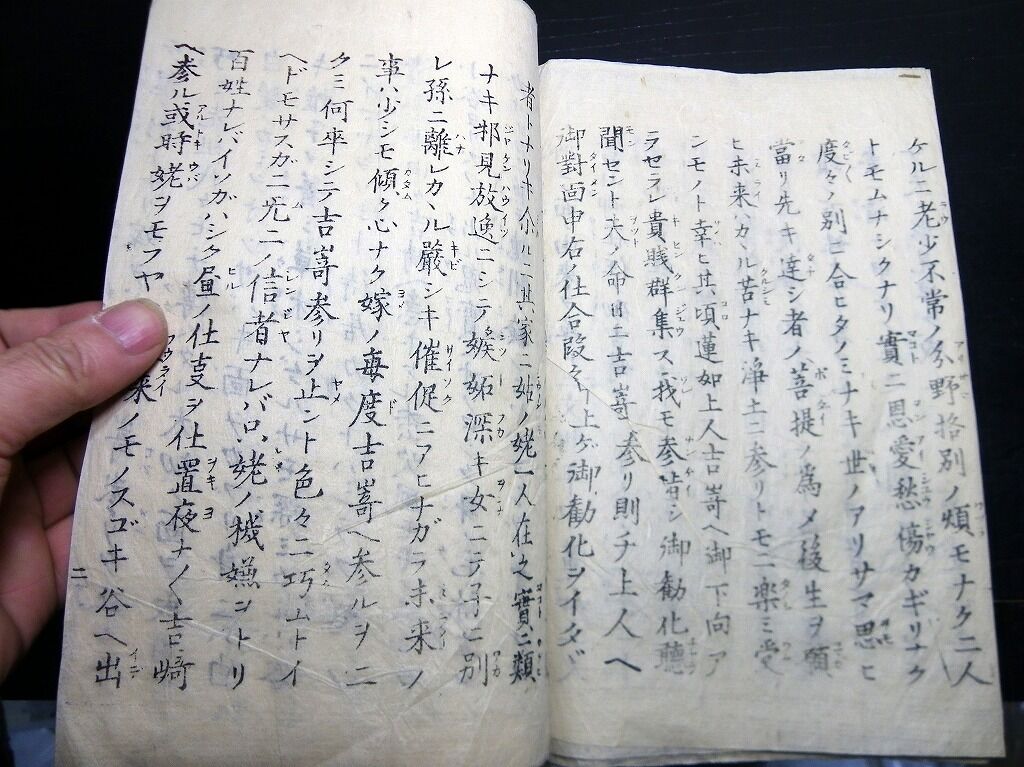 ケルニ老少不常ノ分野格別ノ煩モナク二人
トモムナシクナリ實ニ恩愛愁傷カギリナク
度々ノ別ニ合ヒタノミナキ世ノアリサマ思ヒ
當リ先キ達シ者ノ菩提ノ為メ後生ヲ願
ヒ未来ハカヽル苦ナキ浄土ニ参リトモニ楽ミ受
ンモノト幸ヒ其頃蓮如上人吉嵜ヘ御下向ア
ラセラレ貴賤群集ス我モ参詣シ御勧化聴
聞セント夫ノ命日ニ吉嵜ヘ参リ則チ上人ヘ
御對面申右ノ仕合段々上ゲ御勧化ヲイタヾ
者トナリキ尒ルニ其家ニ姑ノ姥一人在之實ニ類
ナキ邪見放逸ニシテ嫉妬深キ女ニテ子ニ別
レ孫ニ離レカヽル厳シキ催促ニアヒナガラ未来ノ
事ハ少シモ傾ク心ナク嫁ノ毎度吉嵜ヘ参ルヲニ
クミ何卒シテ吉嵜参リヲ止ント色々ニ巧ムトイ
ヘドモサスガニ无二ノ信者ナレバ姥ノ機嫌ヲトリ
百姓ナレバイソガハシク昼ノ仕事ヲ仕置夜ナ〱吉﨑
ヘ参ル或時姥ヲモフヤ 来ノモノスゴキ谷ヘ出
二